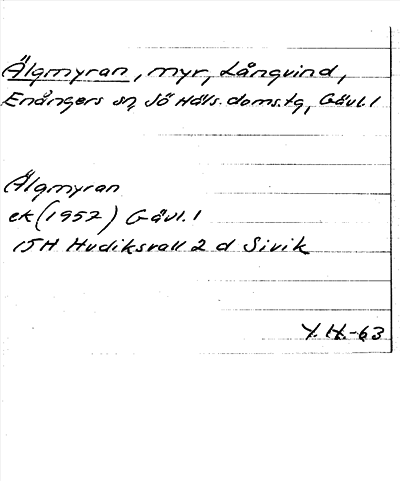 Älgmyran, myr, Långvind,
Enångers sn, Jö Häls. doms.tg, Gävl.l
Älgmyran
ek (1952) Gävl.l
15H Hudiksvall 2 d Sivik
Y.H.-63